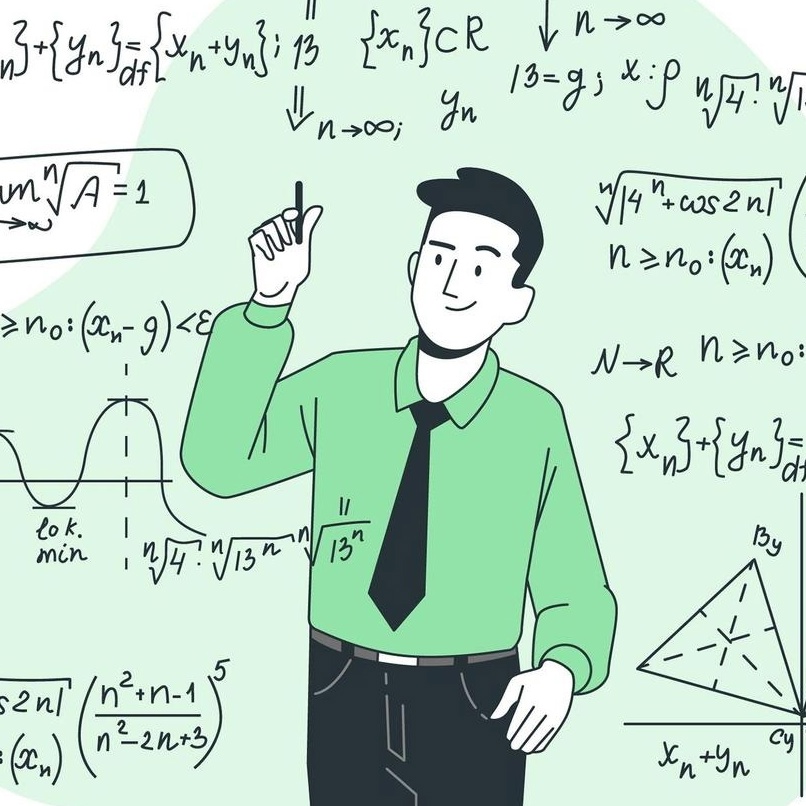 n}+{yn}=df{xn+yn}; 13 {xn}⊂R
n→∞
⇓ n→∞; yn
13=g; x:ρ ⁿ√4·ⁿ√1
im ⁿ√A=1
→∞
ⁿ√|4ⁿ+cos2n|
n≥n₀:(xn)
≥n₀:(xn-g)<ε
N→R n≥n₀:
{xn}+{yn}=df
lok.
min
ⁿ√4·ⁿ√13ⁿ ⁿ√13ⁿ
By
s2n| ((n²+n-1)/(n²-2n+3))⁵
:(xn)
Cy
xn+yn